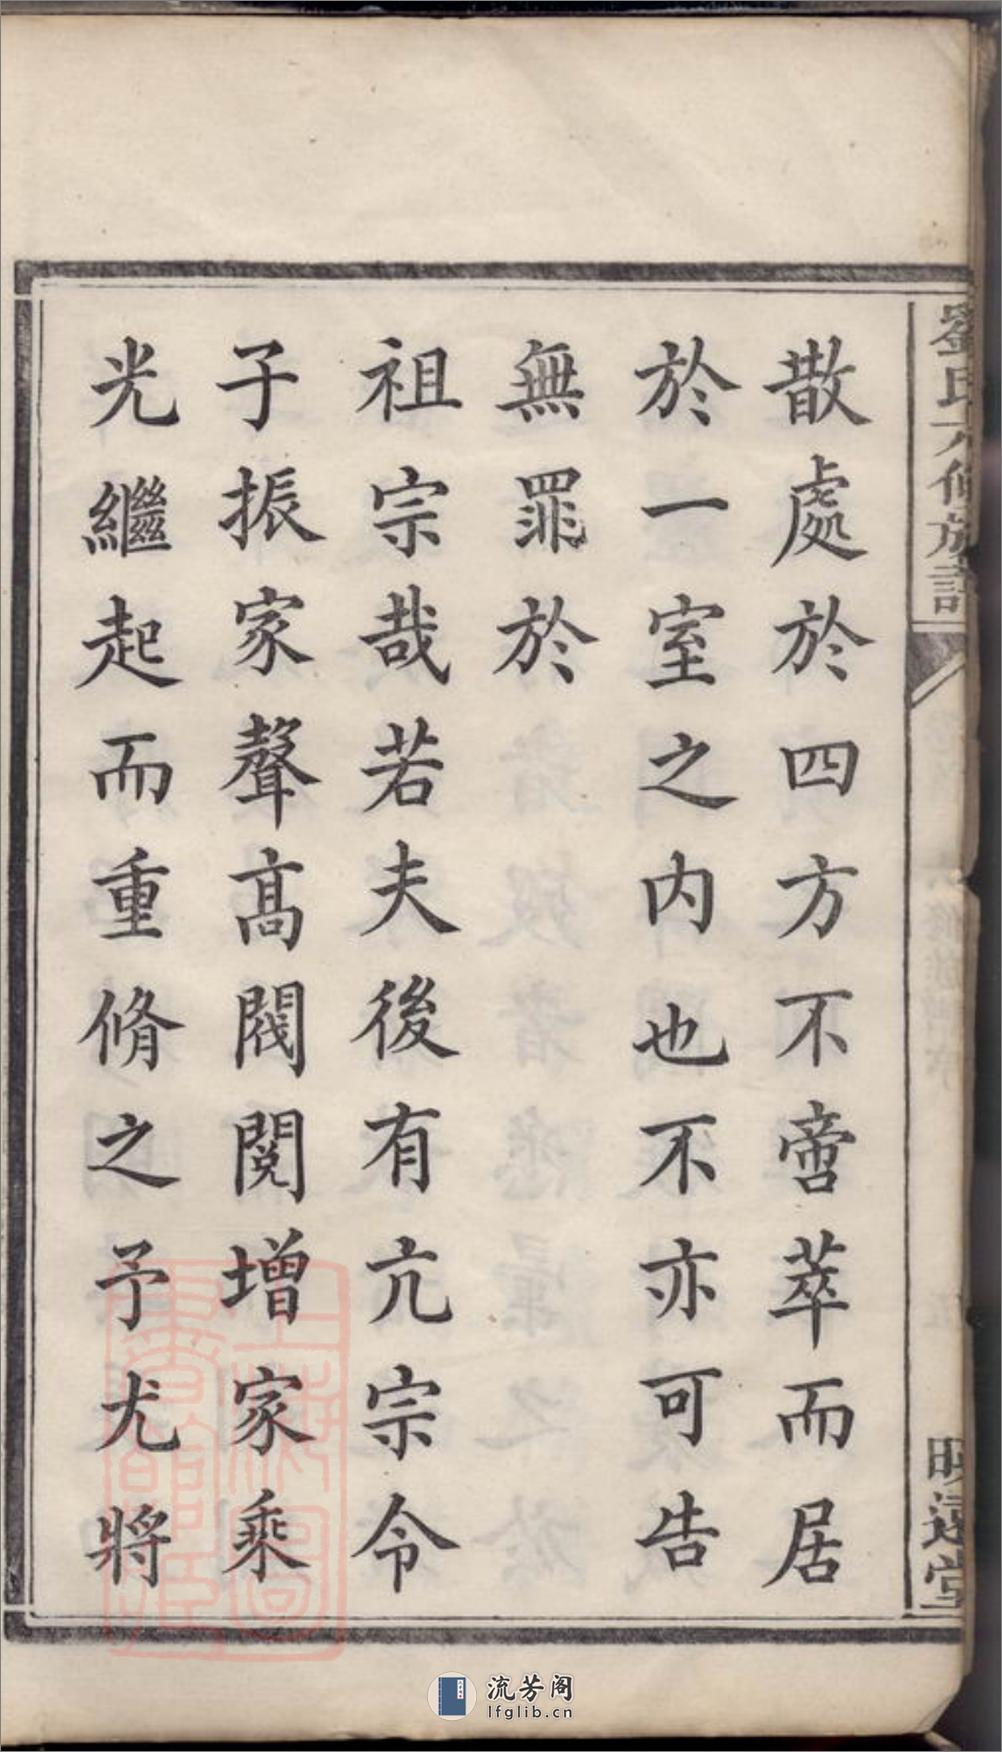 劉氏六修族譜
暎遠堂
散處於四方不啻萃而居
於一室之内也不亦可告
無罪於
祖宗哉若夫後有亢宗令
子振家聲高閥閱增家乘
光繼起而重脩之予尤將
流芳阁
lfglib.cn